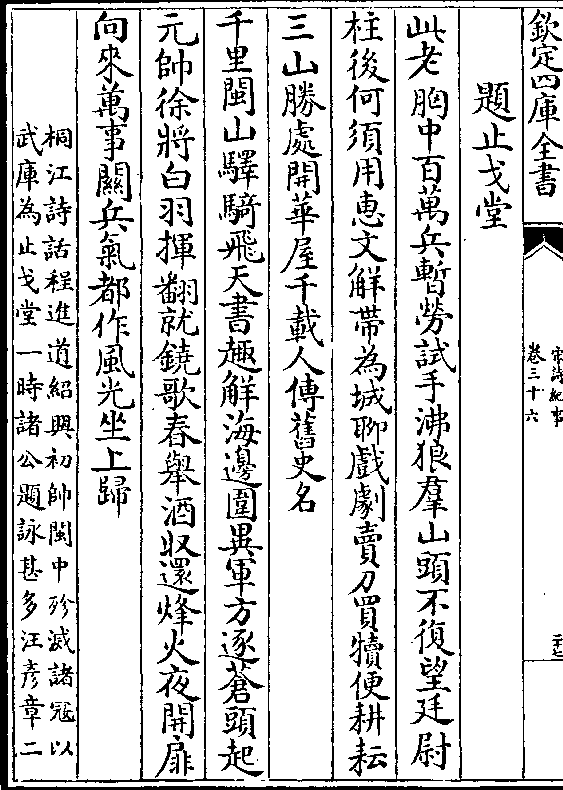 欽定四庫全書
宋詩紀事
卷三十六
題止戈堂
此老胸中百萬兵暫勞試手沸狼羣山頭不復望廷尉
柱後何須用惠文解帶為城聊戲劇賣刀買犢便耕耘
三山勝處開華屋千載人傳舊史名
千里閩山驛騎飛天書趣解海邊圍異軍方逐蒼頭起
元帥徐將白羽揮翻就鐃歌春舉酒収還烽火夜開扉
向來萬事關兵氣都作風光坐上歸
桐江詩話程進道紹興初帥閩中殄滅諸冦以
武庫為止戈堂一時諸公題詠甚多汪彦章二